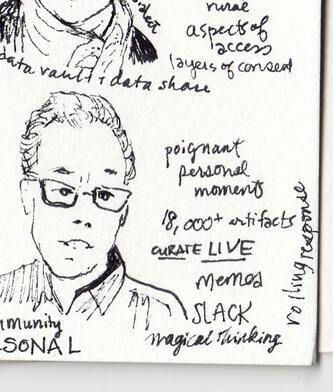 rural
aspects of
access
layers of consent
data vault + data share
poignant
personal
moments
18,000+ artifacts
CURATE LIVE
memes
SLACK
magical thinking
rolling response